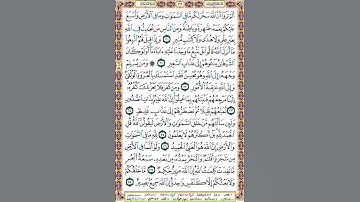 أَلَمْ تَرَوْا أَنَّ اللَّهَ سَخَّرَ لَكُم مَّا فِي السَّمَٰوَٰتِ وَمَا فِي الْأَرْضِ وَأَسْبَغَ
عَلَيْكُمْ نِعَمَهُ ظَٰهِرَةً وَبَاطِنَةً وَمِنَ النَّاسِ مَن يُجَٰدِلُ فِي
اللَّهِ بِغَيْرِ عِلْمٍ وَلَا هُدًى وَلَا كِتَٰبٍ مُّنِيرٍ ٢٠ وَإِذَا قِيلَ لَهُمُ اتَّبِعُوا
مَا أَنزَلَ اللَّهُ قَالُوا بَلْ نَتَّبِعُ مَا وَجَدْنَا عَلَيْهِ ءَابَاءَنَا أَوَلَوْ كَانَ
الشَّيْطَٰنُ يَدْعُوهُمْ إِلَىٰ عَذَابِ السَّعِيرِ ٢١ ۞ وَمَن يُسْلِمْ
وَجْهَهُ إِلَى اللَّهِ وَهُوَ مُحْسِنٌ فَقَدِ اسْتَمْسَكَ بِالْعُرْوَةِ الْوُثْقَىٰ
وَإِلَى اللَّهِ عَٰقِبَةُ الْأُمُورِ ٢٢ وَمَن كَفَرَ فَلَا يَحْزُنكَ كُفْرُهُ
إِلَيْنَا مَرْجِعُهُمْ فَنُنَبِّئُهُم بِمَا عَمِلُوا إِنَّ اللَّهَ عَلِيمٌ بِذَاتِ الصُّدُورِ
٢٣ نُمَتِّعُهُمْ قَلِيلًا ثُمَّ نَضْطَرُّهُمْ إِلَىٰ عَذَابٍ غَلِيظٍ ٢٤
وَلَئِن سَأَلْتَهُم مَّنْ خَلَقَ السَّمَٰوَٰتِ وَالْأَرْضَ لَيَقُولُنَّ اللَّهُ قُلِ
الْحَمْدُ لِلَّهِ بَلْ أَكْثَرُهُمْ لَا يَعْلَمُونَ ٢٥ لِلَّهِ مَا فِي السَّمَٰوَٰتِ
وَالْأَرْضِ إِنَّ اللَّهَ هُوَ الْغَنِيُّ الْحَمِيدُ ٢٦ وَلَوْ أَنَّمَا فِي الْأَرْضِ
مِن شَجَرَةٍ أَقْلَٰمٌ وَالْبَحْرُ يَمُدُّهُ مِن بَعْدِهِ سَبْعَةُ أَبْحُرٍ
مَّا نَفِدَتْ كَلِمَٰتُ اللَّهِ إِنَّ اللَّهَ عَزِيزٌ حَكِيمٌ ٢٧ مَّا خَلْقُكُمْ
وَلَا بَعْثُكُمْ إِلَّا كَنَفْسٍ وَٰحِدَةٍ إِنَّ اللَّهَ سَمِيعٌ بَصِيرٌ ٢٨